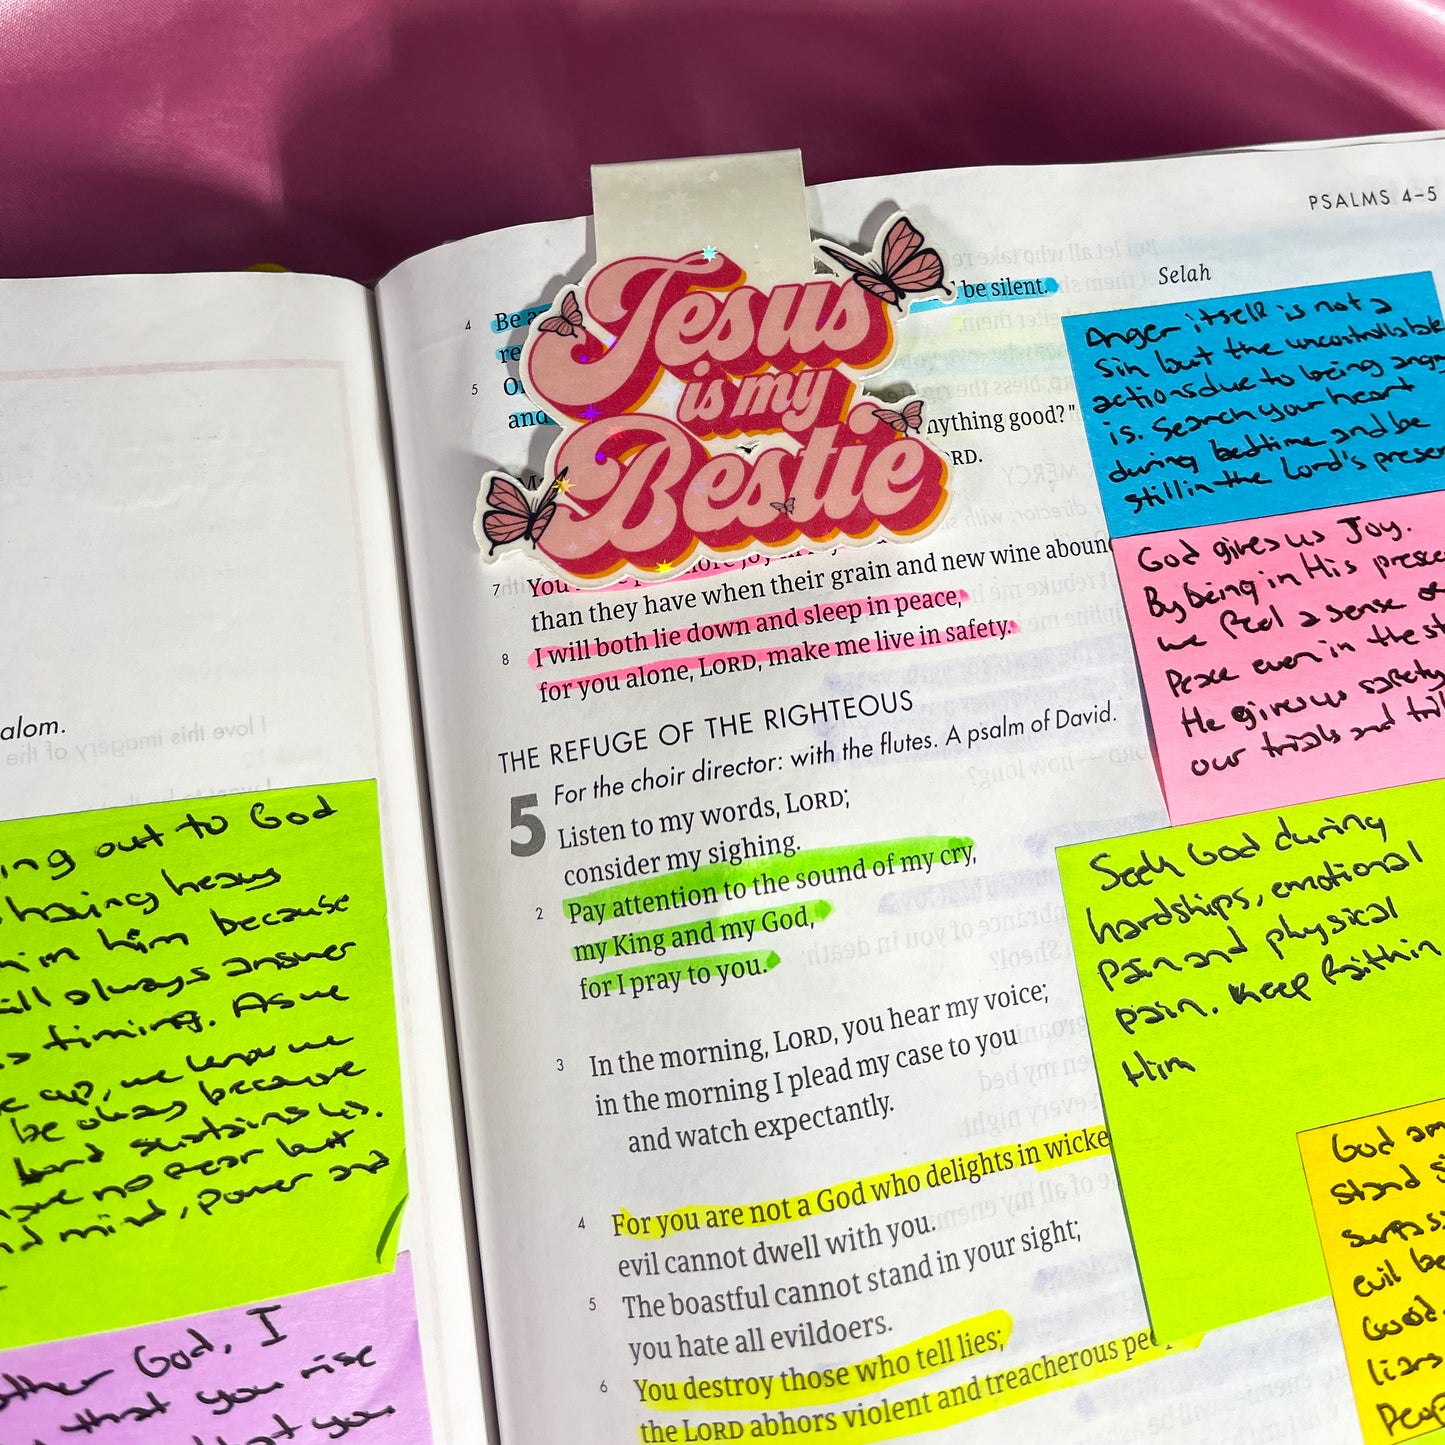 alom.
ing out to God
having heavy
him because
ill always answer
timing. As we
up, we know we
be okay because
Lord sustains us.
have no fear but
mind, power and
God, I
that you rise
that you
PSALMS 4–5
Jesus
is my
Bestie
4 Be
be silent. Selah
re
5
and
nything good?"
RD.
7 You more joy in
than they have when their grain and new wine aboun
8 I will both lie down and sleep in peace,
for you alone, LORD, make me live in safety.
THE REFUGE OF THE RIGHTEOUS
For the choir director: with the flutes. A psalm of David.
5 Listen to my words, LORD;
consider my sighing.
2 Pay attention to the sound of my cry,
my King and my God,
for I pray to you.
3 In the morning, LORD, you hear my voice;
in the morning I plead my case to you
and watch expectantly.
4 For you are not a God who delights in wicke
evil cannot dwell with you.
5 The boastful cannot stand in your sight;
you hate all evildoers.
6 You destroy those who tell lies;
the LORD abhors violent and treacherous peop
Anger itself is not a
sin but the uncontrollable
actions due to being angry
is. Search your heart
during bedtime and be
still in the Lord's presen
God gives us Joy.
By being in His presence
we feel a sense of
Peace even in the st
He gives us safety
our trials and
Seek God during
hardships, emotional
pain and physical
pain. Keep faith in
Him
God
stand
evil be
Good.
liars
Peop